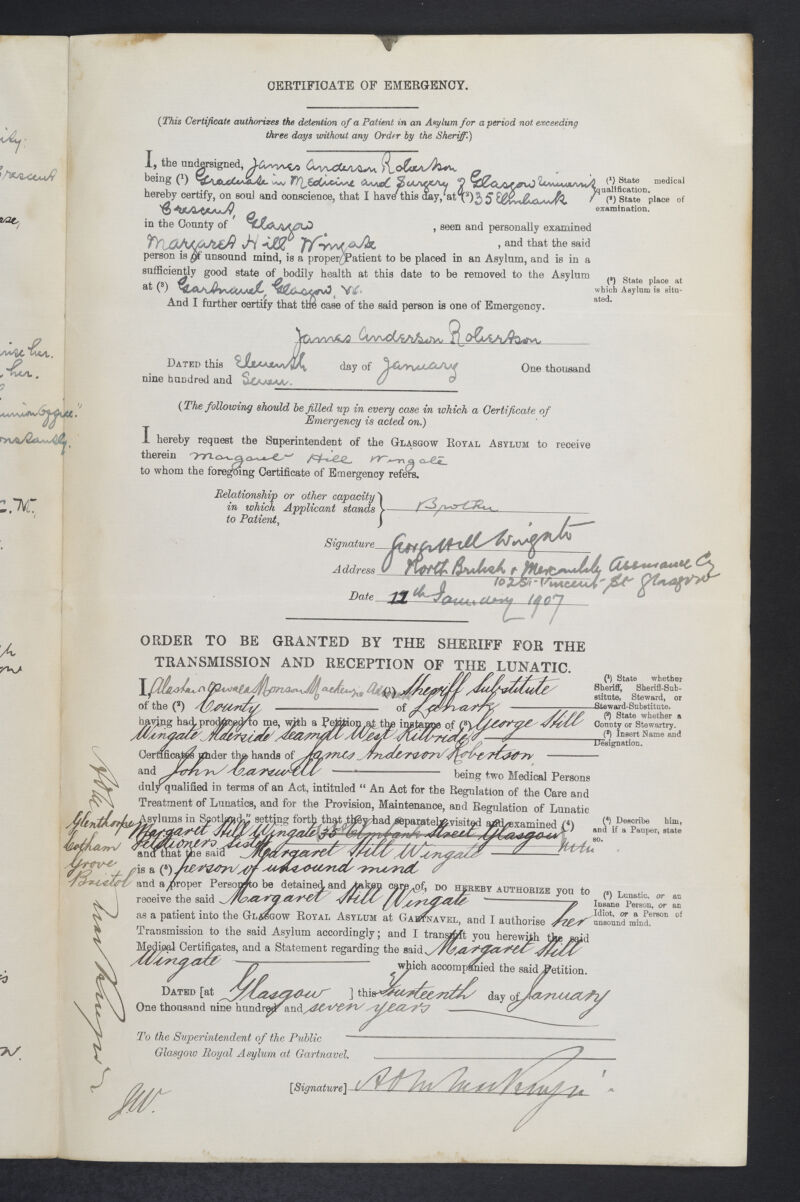 CERTIFICATE OF EMERGENCY.
(This Certificate authorizes the detention of a Patient in an Asylum for a period not exceeding
three days without any Order by the Sheriff.)
I, the undersigned, James Anderson Robertson
being (1) Graduate in Medicine and Surgery of Glasgow University
hereby certify, on soul and conscience, that I have this day, at (2) 35 Elmbank
Crescent,
in the County of Glasgow , seen and personally examined
Margaret Hill Wingate , and that the said
person is of unsound mind, is a proper Patient to be placed in an Asylum, and is in a
sufficiently good state of bodily health at this date to be removed to the Asylum
at (3) Gartnavel, Glasgow, W.
And I further certify that the case of the said person is one of Emergency.
(1) State medical
qualification.
(2) State place of
examination.
(3) State place at
which Asylum is situ-
ated.
James Anderson Robertson
DATED this Eleventh day of January One thousand
nine hundred and Seven.
(The following should be filled up in every case in which a Certificate of
Emergency is acted on.)
I hereby request the Superintendent of the GLASGOW ROYAL ASYLUM to receive
therein Margaret Hill Wingate
to whom the foregoing Certificate of Emergency refers.
Relationship or other capacity
in which Applicant stands
to Patient,
Brother
Signature George Hill Wingate
Address North British & Mercantile Assurance Cy
102 St Vincent St Glasgow
Date 11th January 1907
ORDER TO BE GRANTED BY THE SHERIFF FOR THE
TRANSMISSION AND RECEPTION OF THE LUNATIC.
I, Alastair Oswald Monson Mackenzie (1) Sheriff Substitute
of the (2) County of Lanark
having had produced to me, with a Petition at the instance of (3) George Hill
Wingate Seamill West Kilbride
Certificates under the hands of James Anderson Robertson
and John Carswell being two Medical Persons
duly qualified in terms of an Act, intituled "An Act for the Regulation of the Care and
Treatment of Lunatics, and for the Provision, Maintenance, and Regulation of Lunatic
Asylums in Scotland," setting forth that they had separately visited and examined (4)
Margaret Hill Wingate 35 Elmbank Street Glasgow
Petitioners Sister
and that the said Margaret Hill Wingate
is a (5) person of unsound mind
and a proper Person to be detained and taken care of, DO HEREBY AUTHORIZE you to
receive the said Margaret Hill Wingate
as a patient into the GLASGOW ROYAL ASYLUM at GARTNAVEL, and I authorise her
Transmission to the said Asylum accordingly; and I transmit you herewith the said
Medical Certificates, and a Statement regarding the said Margaret Hill
Wingate which accompanied the said Petition.
DATED [at Glasgow ] this Fourteenth day of January
One thousand nine hundred and seven years
To the Superintendent of the Public
Glasgow Royal Asylum at Gartnavel.
[Signature] A O M Mackenzie
(1) State whether
Sheriff, Sheriff-Sub-
stitute, Steward, or
Steward-Substitute.
(2) State whether a
County or Stewartry.
(3) Insert Name and
Designation.
(4) Describe him,
and if a Pauper, state
so.
(5) Lunatic, or an
Insane Person, or an
Idiot, or a Person of
unsound mind.
Glenthorpe
Cotham
Grove
Bristol